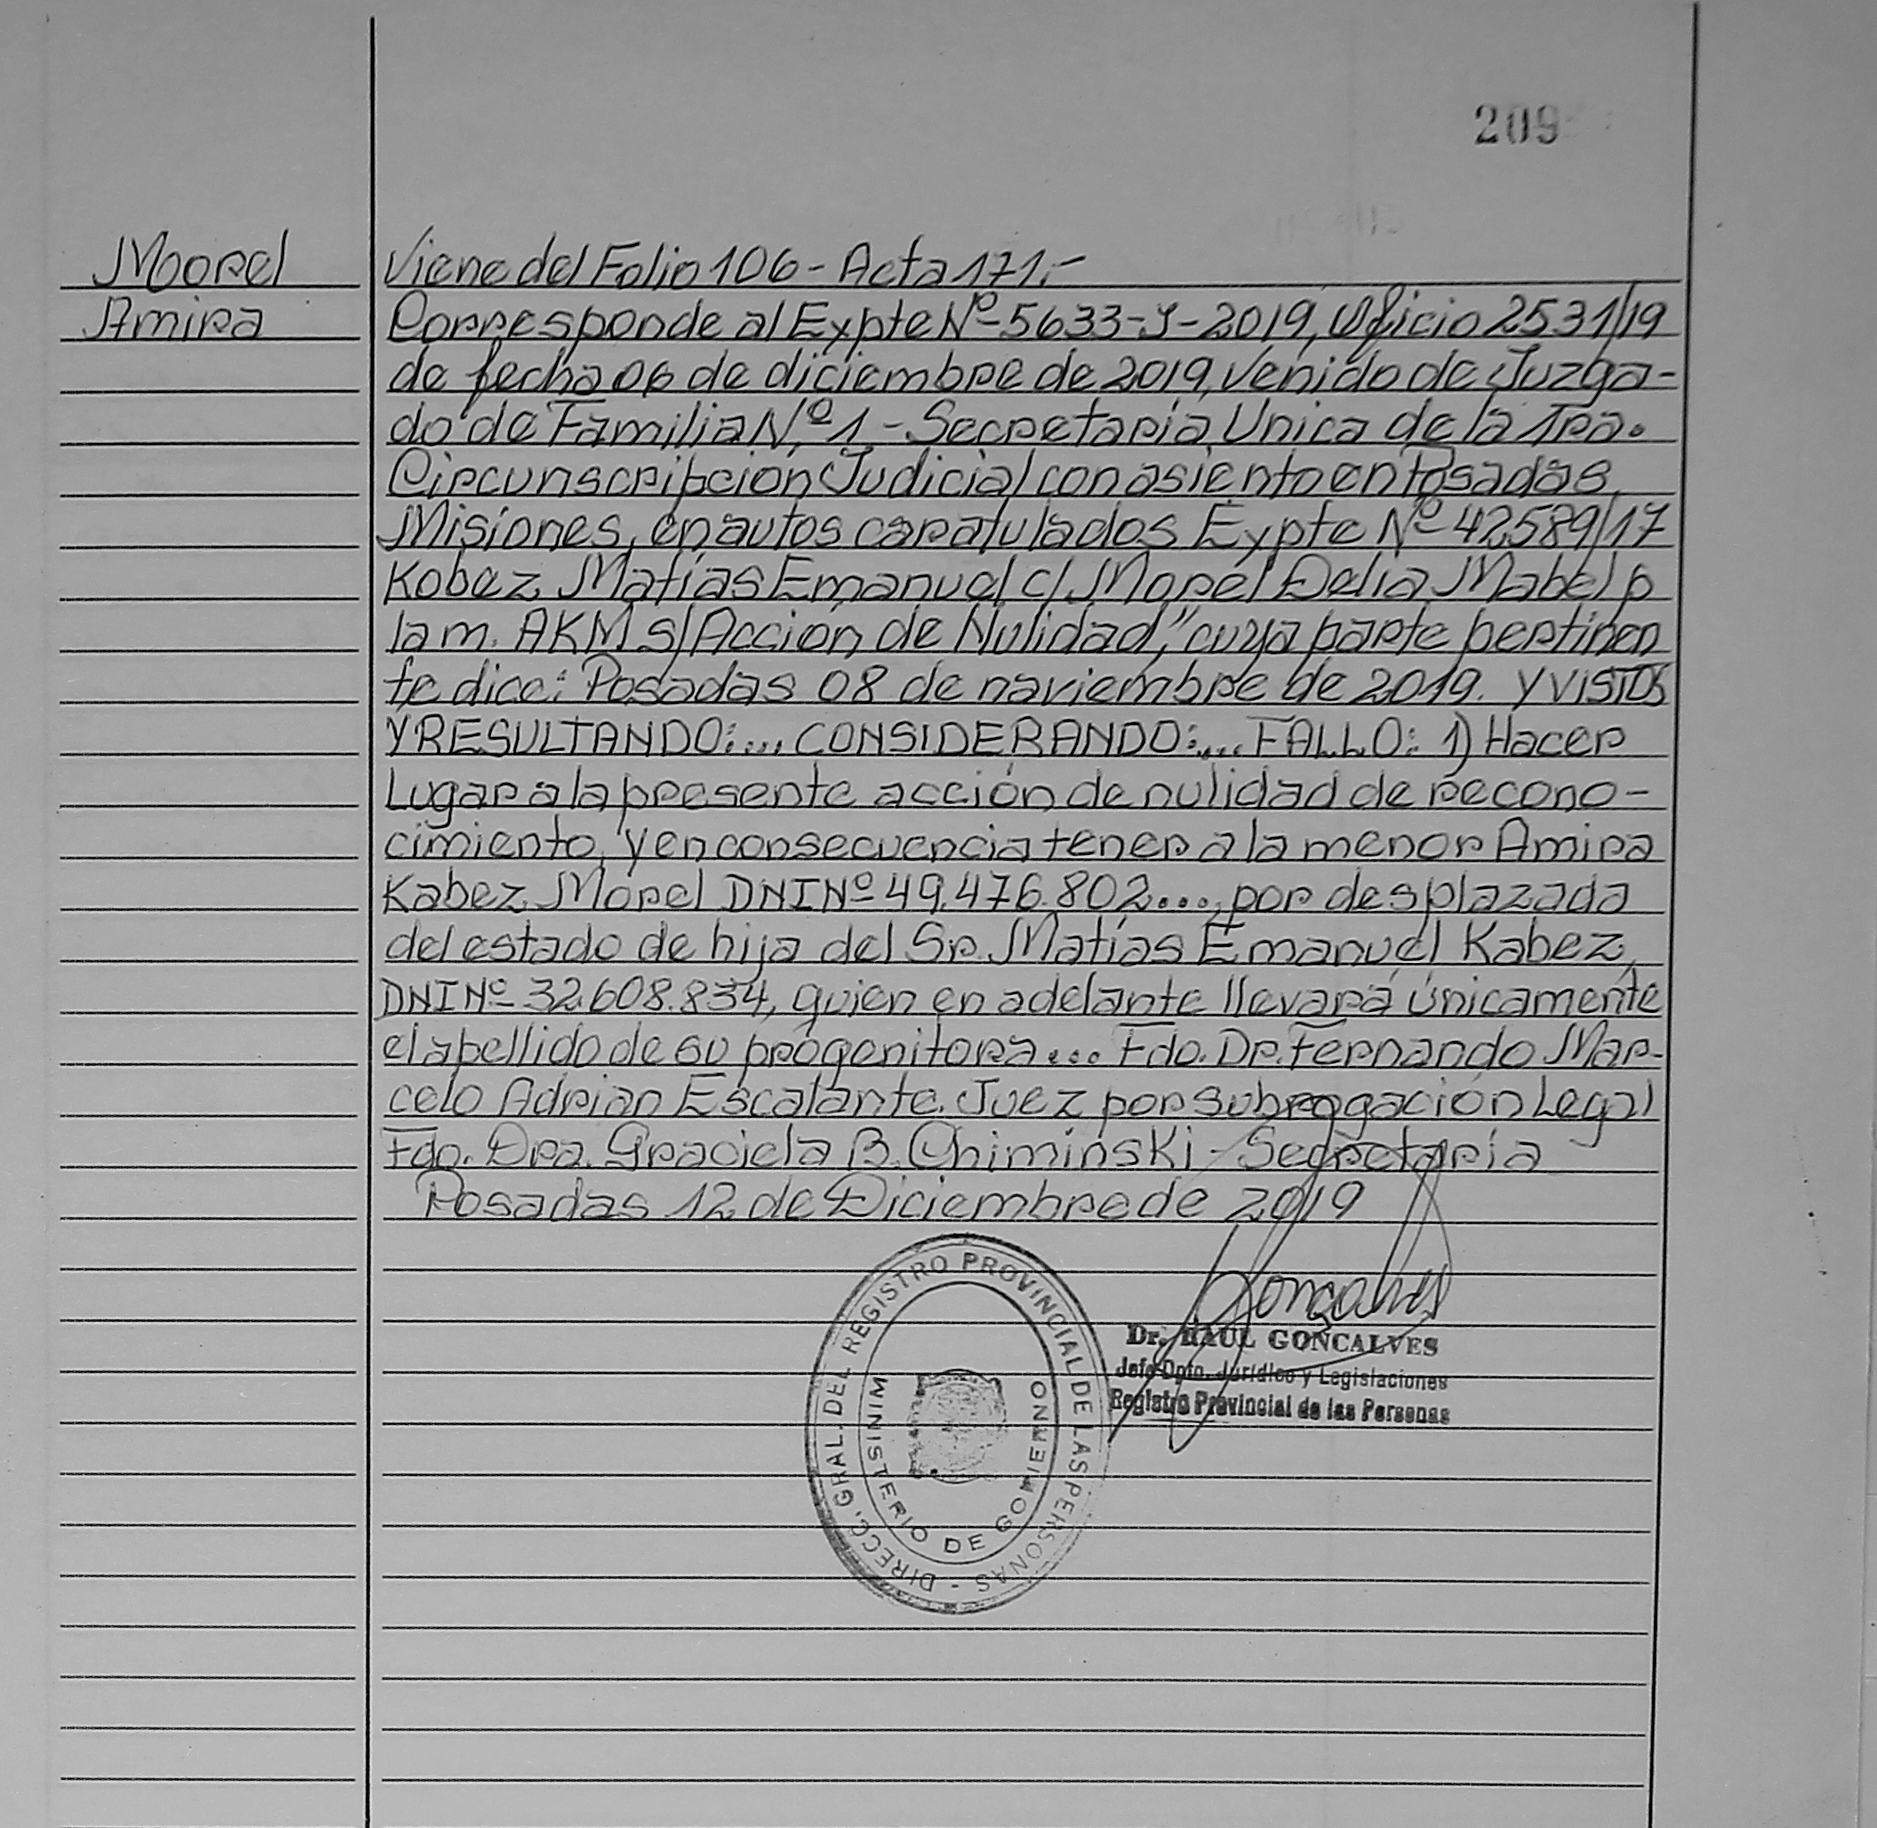 209
Morel
Amira
Viene del Folio 106 - Acta 171.-
Corresponde al Expte Nº 5633-J-2019, Oficio 2531/19
de fecha 06 de diciembre de 2019, venido de Juzga-
do de Familia N.º 1.- Secretaria Unica de la 1ra.
Circunscripción Judicial con asiento en Posadas,
Misiones, en autos caratulados Expte Nº 42589/17
Kobez Matías Emanuel c/ Morel Delia Mabel p
la m. AKM s/ Acción de Nulidad," cuya parte pertinen
te dice: Posadas 08 de naviembre de 2019. Y VISTOS
Y RESULTANDO:... CONSIDERANDO:.... FALLO: 1) Hacer
Lugar a la presente acción de nulidad de recono-
cimiento, y en consecuencia tener a la menor Amira
Kabez Morel DNI Nº 49.476.802..., por desplazada
del estado de hija del Sr. Matías Emanuel Kabez,
DNI Nº 32.608.834, quien en adelante llevará únicamente
el apellido de su progenitora... Fdo. Dr. Fernando Mar-
celo Adrian Escalante. Juez por subrogación Legal
Fdo. Dra. Graciela B. Chiminski - Secretaría
Posadas 12 de Diciembre de 2019
Gonçalves
Dr. RAUL GONÇALVES
Jefe Dpto. Jurídico y Legislaciones
Registro Provincial de las Personas
DIRECC. GRAL. DEL REGISTRO PROVINCIAL DE LAS PERSONAS -
MINISTERIO DE GOBIERNO